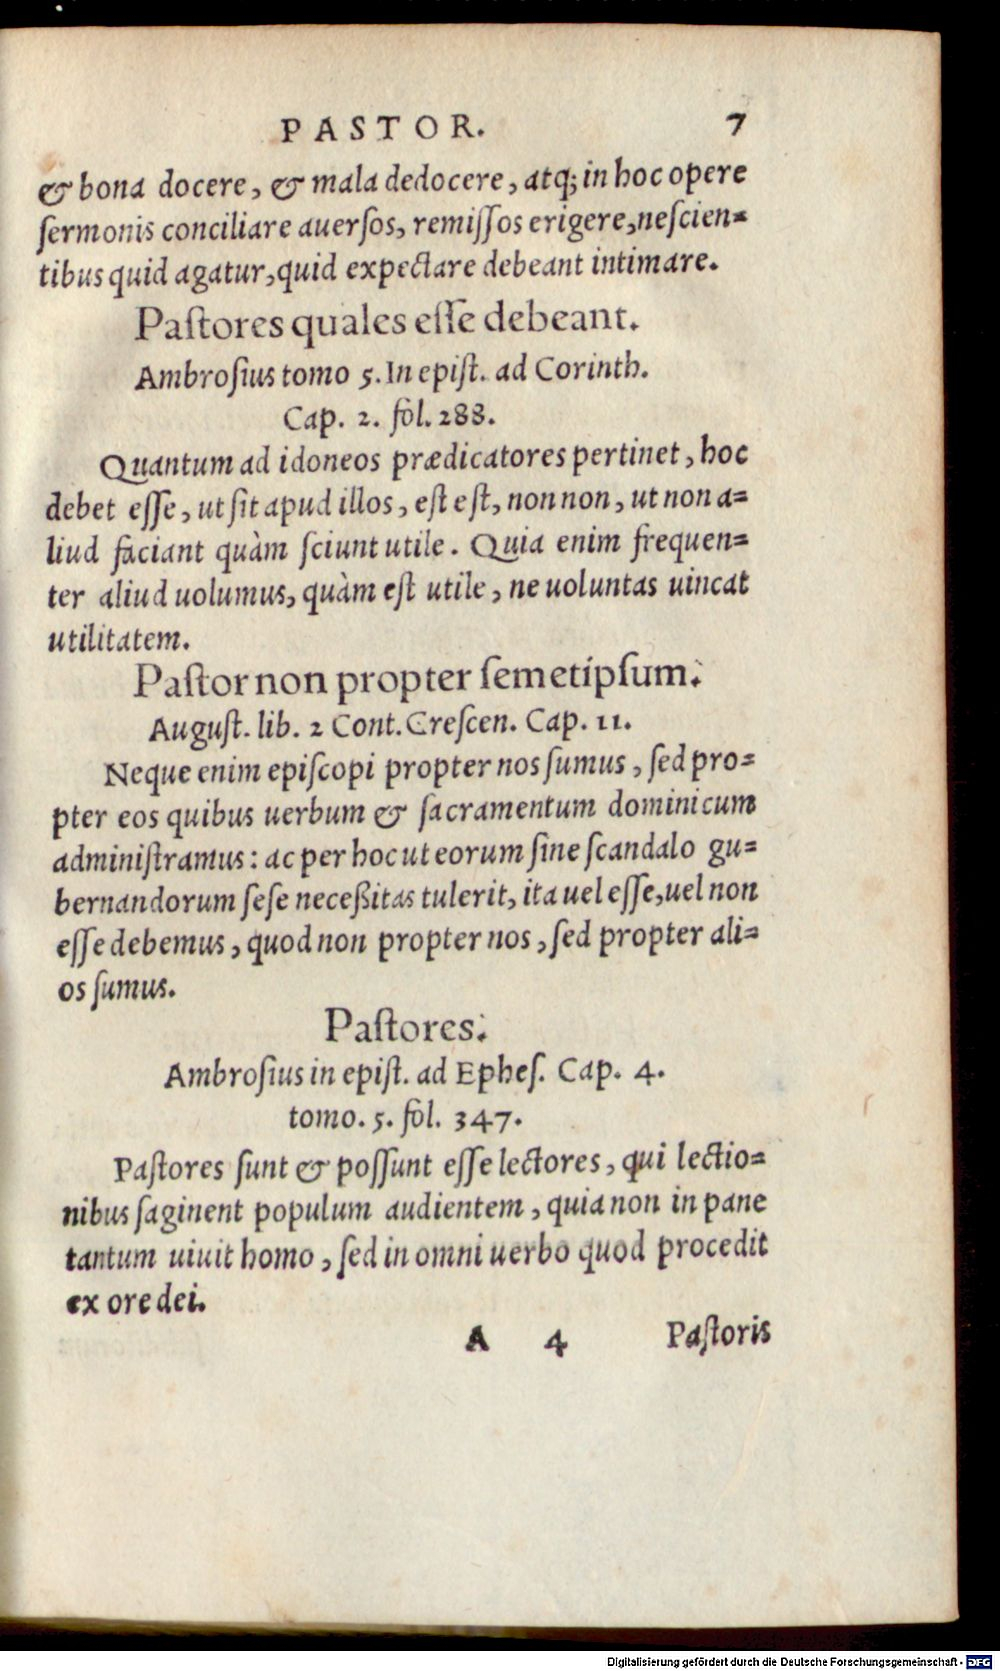 PASTOR. 7
& bona docere, & mala dedocere, atq; in hoc opere
ſermonis conciliare auerſos, remiſſos erigere, neſcien-
tibus quid agatur, quid expectare debeant intimare.
Paſtores quales eſſe debeant.
Ambroſius tomo 5. In epiſt. ad Corinth.
Cap. 2. fol. 288.
Quantum ad idoneos prædicatores pertinet, hoc
debet eſſe, ut ſit apud illos, eſt eſt, non non, ut non a-
liud faciant quàm ſciunt utile. Quia enim frequen-
ter aliud uolumus, quàm eſt utile, ne uoluntas uincat
utilitatem.
Paſtor non propter ſemetipſum.
Auguſt. lib. 2 Cont. Creſcen. Cap. 11.
Neque enim epiſcopi propter nos ſumus, ſed pro-
pter eos quibus uerbum & ſacramentum dominicum
adminiſtramus: ac per hoc ut eorum ſine ſcandalo gu-
bernandorum ſeſe neceßitas tulerit, ita uel eſſe, uel non
eſſe debemus, quod non propter nos, ſed propter ali-
os ſumus.
Paſtores.
Ambroſius in epiſt. ad Epheſ. Cap. 4.
tomo. 5. fol. 347.
Paſtores ſunt & poſſunt eſſe lectores, qui lectio-
nibus ſaginent populum audientem, quia non in pane
tantum uiuit homo, ſed in omni uerbo quod procedit
ex ore dei.
A 4 Paſtoris
Digitalisierung gefördert durch die Deutsche Forschungsgemeinschaft - DFG